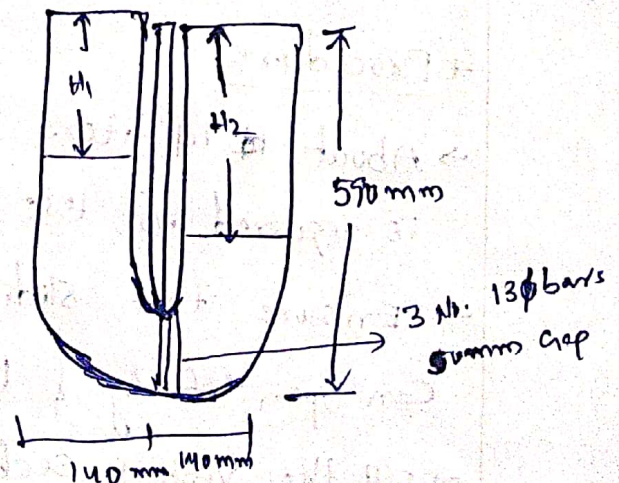 H1
H2
590 mm
3 No. 13ϕ bars
50mm Gap
140 mm 140mm